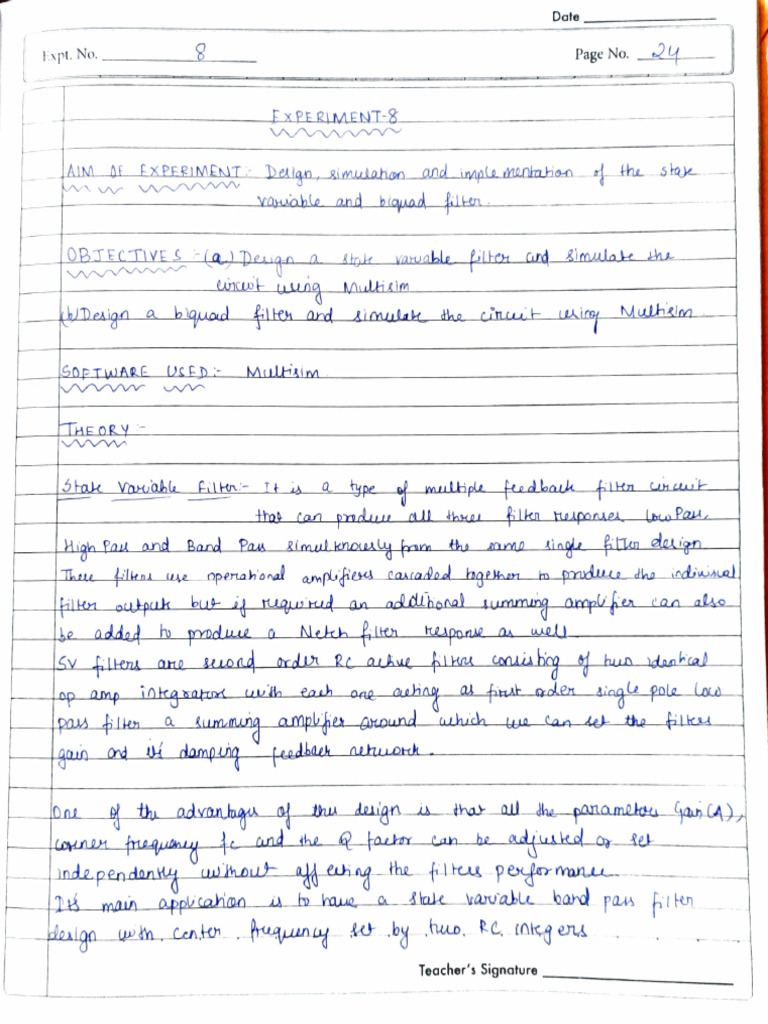 Date
Expt. No. 8 Page No. 24
EXPERIMENT-8
AIM OF EXPERIMENT:- Design, simulation and implementation of the state
variable and biquad filter.
OBJECTIVES :- (a) Design a state variable filter and simulate the
circuit using Multisim
(b) Design a biquad filter and simulate the circuit using Multisim
SOFTWARE USED:- Multisim
THEORY:-
State Variable Filter:- It is a type of multiple feedback filter circuit
that can produce all three filter responses Low Pass,
High Pass and Band Pass simulknously from the same single filter design.
These filters use operational amplifiers cascaded together to produce the indiviual
filter outputs but if required an additional summing amplifier can also
be added to produce a Notch filter response as well.
SV filters are second order RC active filters consisting of two identical
op amp integrators with each one acting as first order single pole low
pass filter a summing amplifier around which we can set the filters
gain and its damping feedback network.
One of the advantages of this design is that all the parameters Gain(A),
corner frequency fc and the Q factor can be adjusted or set
independently without affecting the filters performance.
It's main application is to have a state variable band pass filter
design with center frequency set by two RC integers
Teacher's Signature